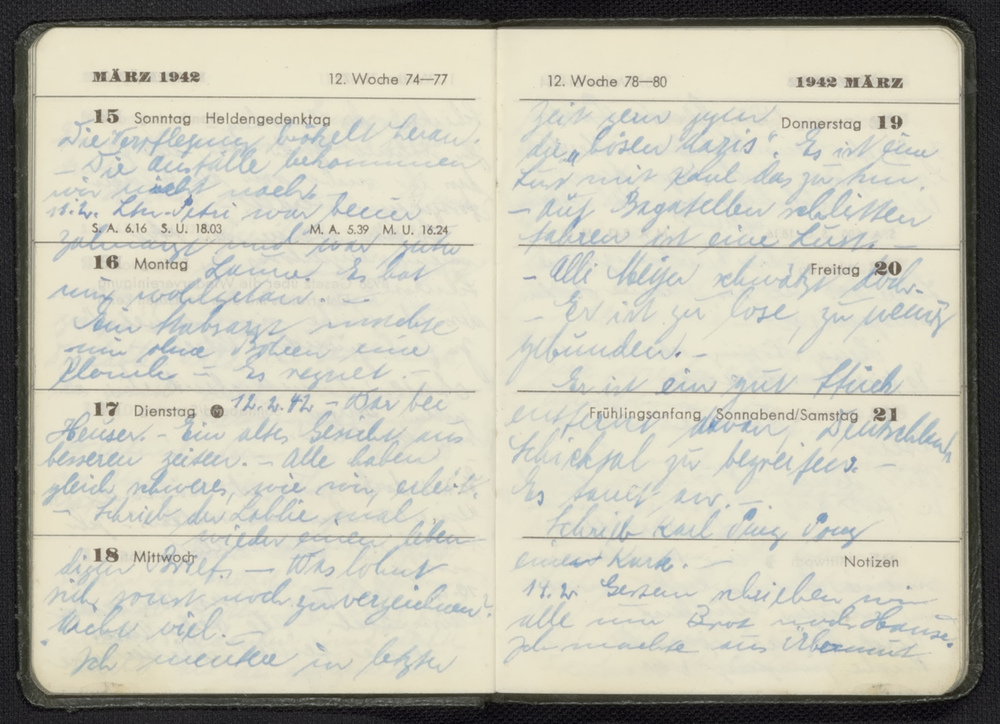 MÄRZ 1942 12. Woche 74—77
15 Sonntag Heldengedenktag
Die Verpflegung
– Die Ausfälle bekommen
wir nicht
11.2. Ltn. Petri war beim
S. A. 6.16 S. U. 18.03 M. A. 5.39 M. U. 16.24
Zahnarzt und war guter
16 Montag
Laune. Es hat
mir wohlgetan. –
Ein Stabsarzt machte
mir ohne Bohren eine
Plombe – Es regnet. –
17 Dienstag 12.2.42 – War bei
Heuser. – Ein altes Gesicht aus
besseren Zeiten. – Alle haben
gleich schweres, wie wir,
– Schrieb der Lobbie mal
wieder einen leben-
18 Mittwoch
digen Brief. – Was lohnt
sich sonst noch zu verzeichnen?
Nicht viel. –
Ich in letzter
12. Woche 78—80 1942 MÄRZ
Donnerstag 19
Zeit gern
die „bösen Nazis“. Es ist eine
Lust mit Karl das zu tun.
– auf Bagatellen schlitten
fahren ist eine Lust. –
Freitag 20
– Alli Meyer schwätzt doch. –
– Er ist zu lose, zu wenig
gebunden. –
Er ist ein gut Stück
Frühlingsanfang Sonnabend/Samstag 21
entfernt davon, Deutschlands
Schicksal zu begreifen. –
Es taut
Schrieb Karl Ping Pong
eine Karte. –
Notizen
14.2. Gestern schrieben wir
alle um Brot nach Hause.
Ich machte aus Übermut